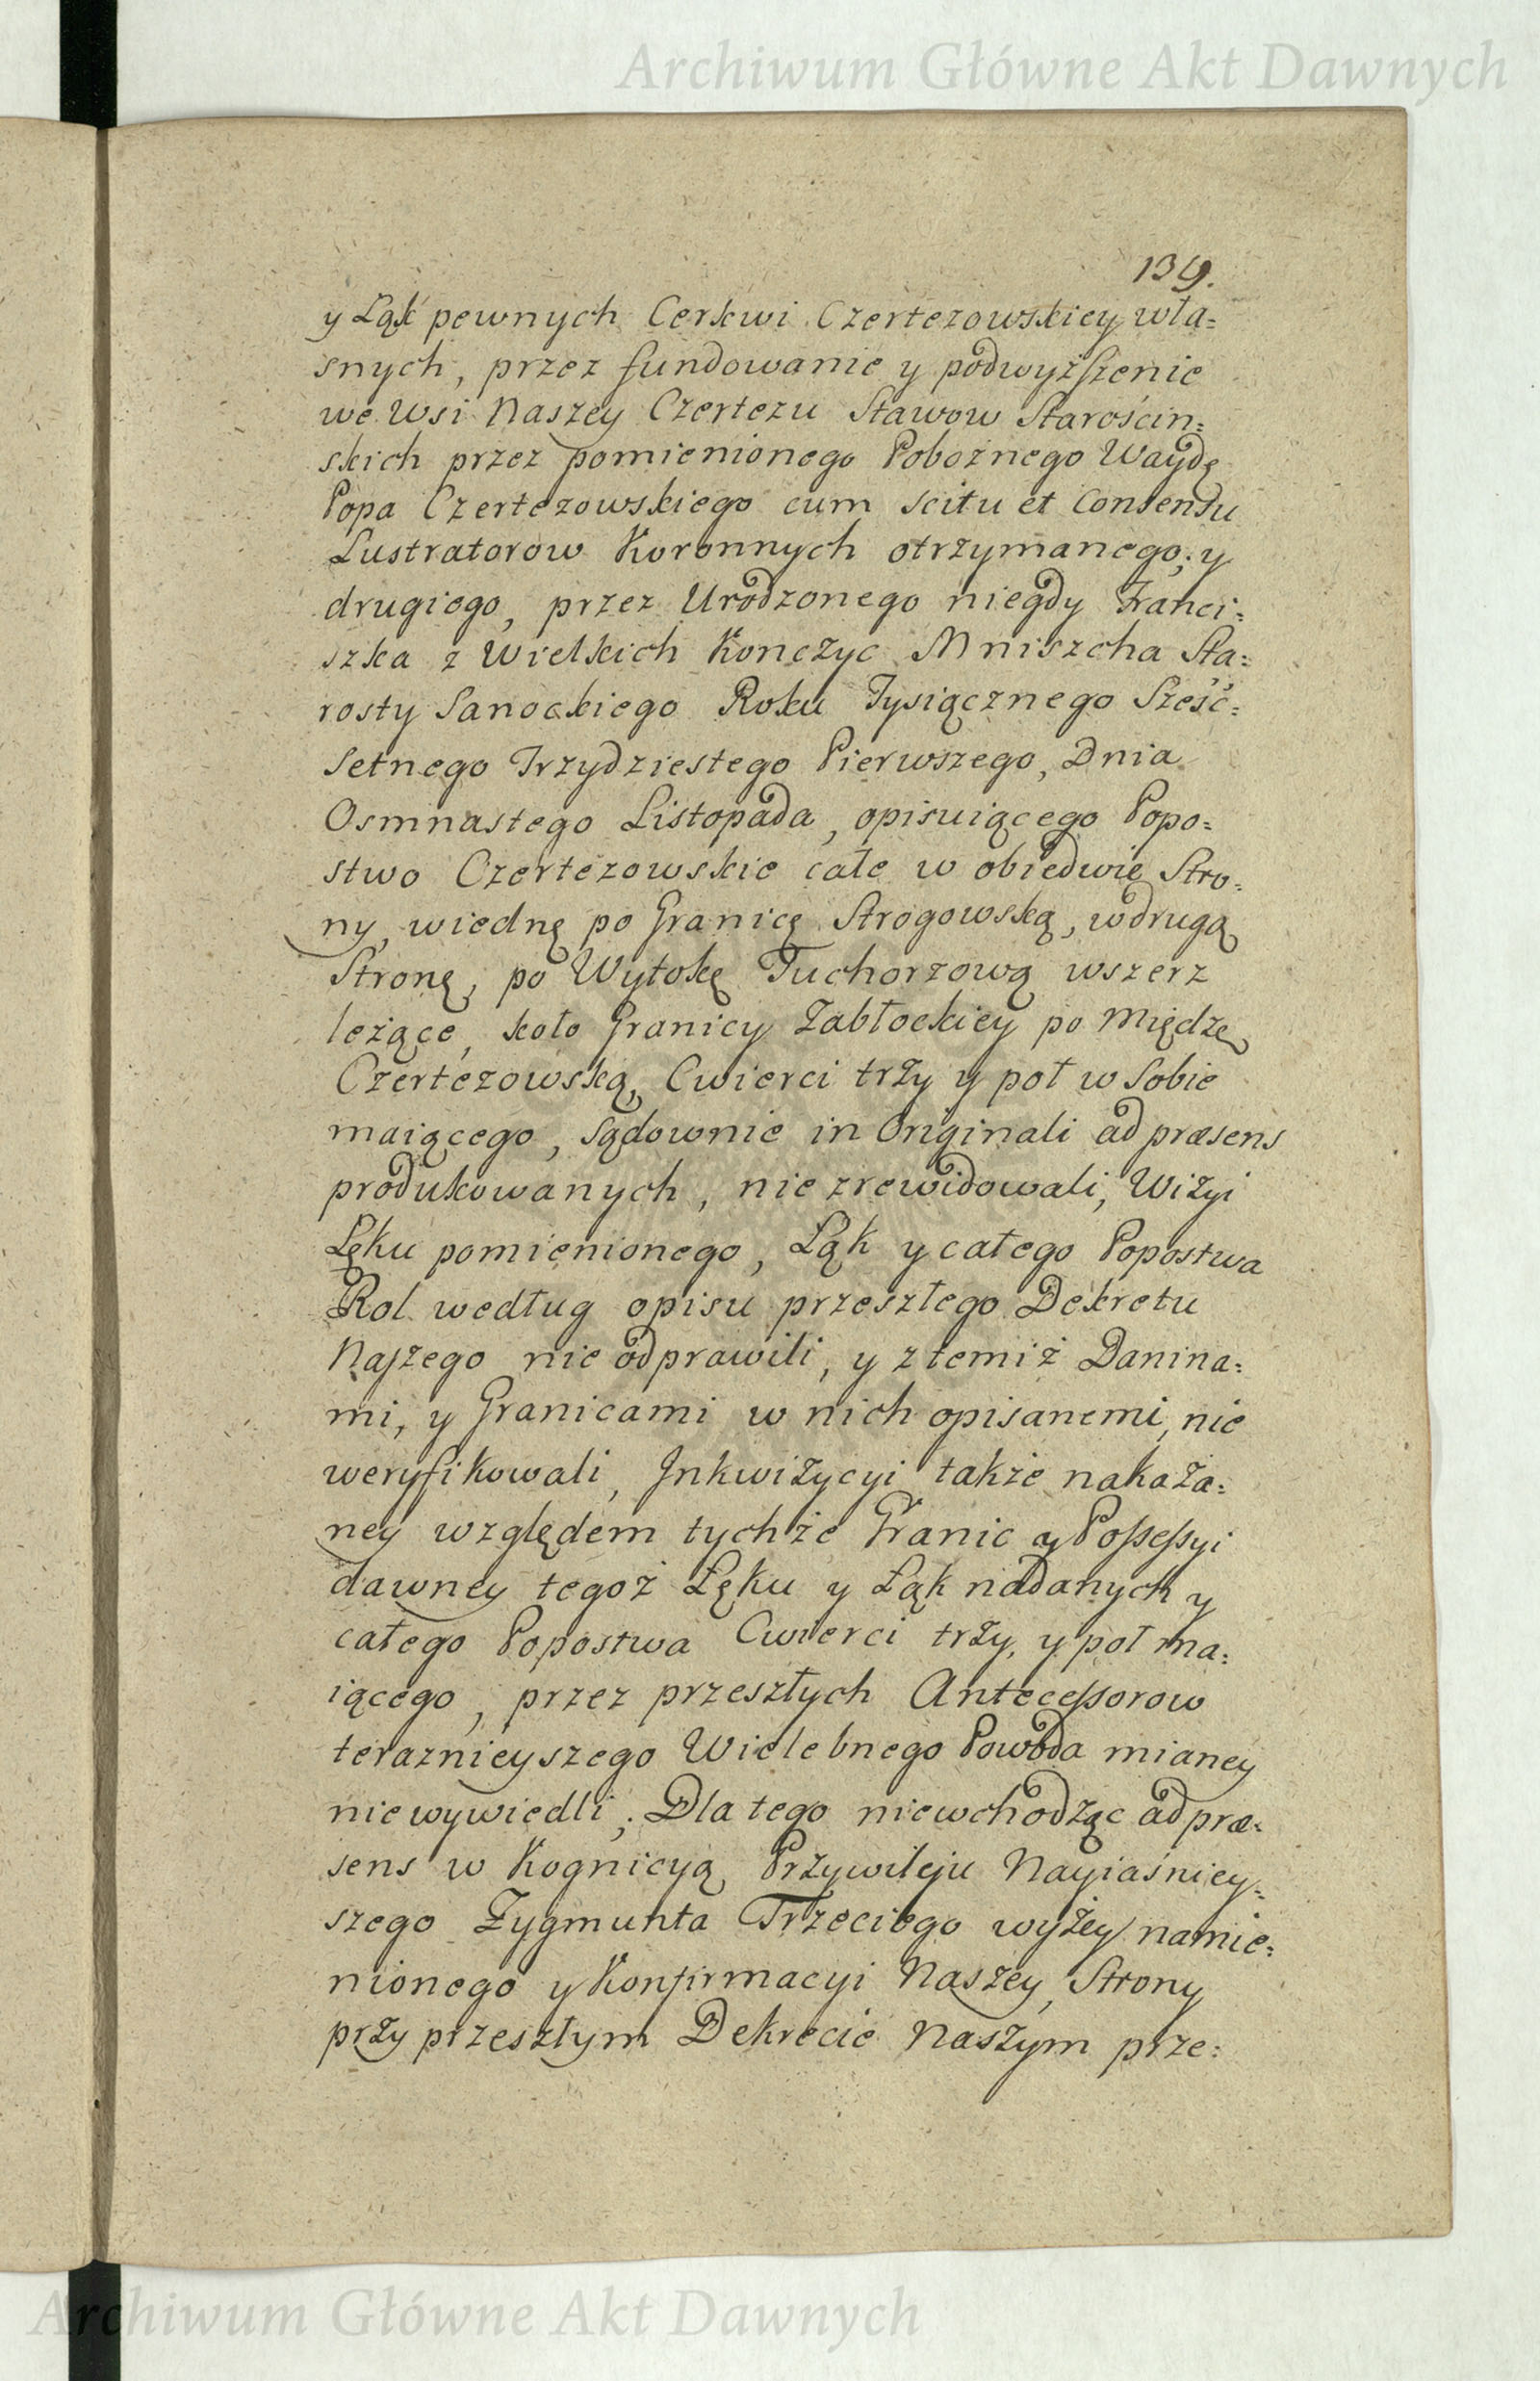 Archiwum Główne Akt Dawnych
139.
y Łąk pewnych Cerkwi Czertezowskiey wła=
snych, przez fundowanie y podwyższenie
we Wsi Naszey Czertezu Stawow Starościn=
skich przez pomienionego Pobożnego Waydę
Popa Czertezowskiego cum scitu et Consensu
Lustratorow Koronnych otrzymanego; y
drugiego, przez Urodzonego niegdy Franci=
szka z Wielkich Konczyc Mniszcha Sta=
rosty Sanockiego Roku Tysiącznego Sześć=
setnego Trzydziestego Pierwszego, Dnia
Osmnastego Listopada, opisuiącego Popo=
stwo Czertezowskie całe w obiedwie Stro=
ny, wiednę po Granicę Strogowską, wdrugą
Stronę, po Wytokę Tuchorzową wszerz
leżące, koło Granicy Zabłockiey po Miedzę
Czertezowską, Cwierci trzy y poł w sobie
maiącego, sądownie in Originali ad præsens
produkowanych, nie zrewidowali, Wizyi
Łęku pomienionego, Łąk y całego Popostwa
Rol według opisu przeszłego Dekretu
Naszego nie odprawili, y z temiż Danina=
mi, y Granicami w nich opisanemi, nie
weryfikowali, Inkwizycyi także nakaza=
ney względem tychże Granic y Possessyi
dawney tegoż Łęku y Łąk nadanych y
całego Popostwa Cwierci trzy, y poł ma=
iącego, przez przeszłych Antecessorow
teraznieyszego Wielebnego Powoda mianey
niewywiedli; Dla tego niewchodząc ad præ=
sens w Kognicyą Przywileju Nayiaśniey=
szego Zygmunta Trzeciego wyżey namie=
nionego y Konfirmacyi Naszey, Strony
przy przeszłym Dekrecie Naszym prze=
Archiwum Główne Akt Dawnych